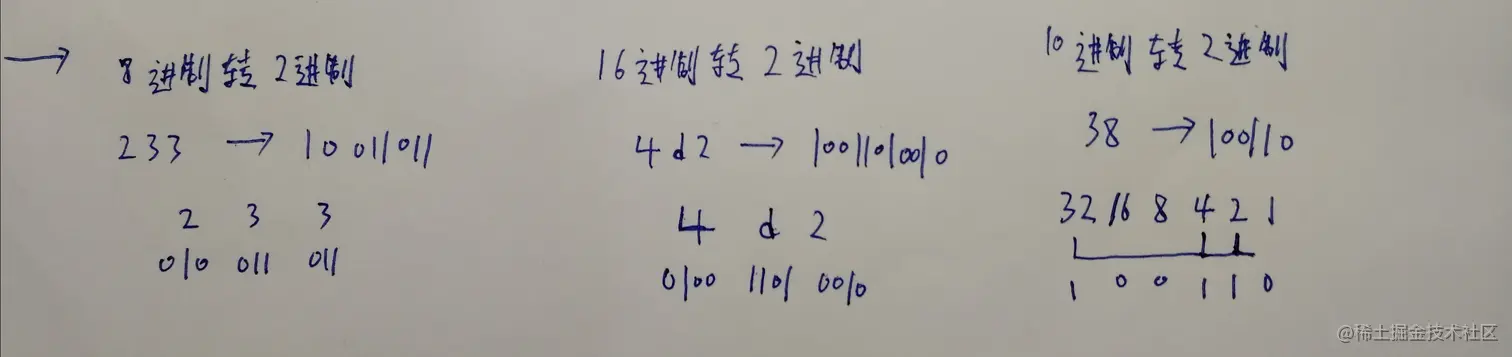 → 8进制转2进制
233 → 10011011
2 3 3
010 011 011
16进制转2进制
4d2 → 10011010010
4 d 2
0100 1101 0010
10进制转2进制
38 → 100110
32 16 8 4 2 1
1 0 0 1 1 0
@稀土掘金技术社区